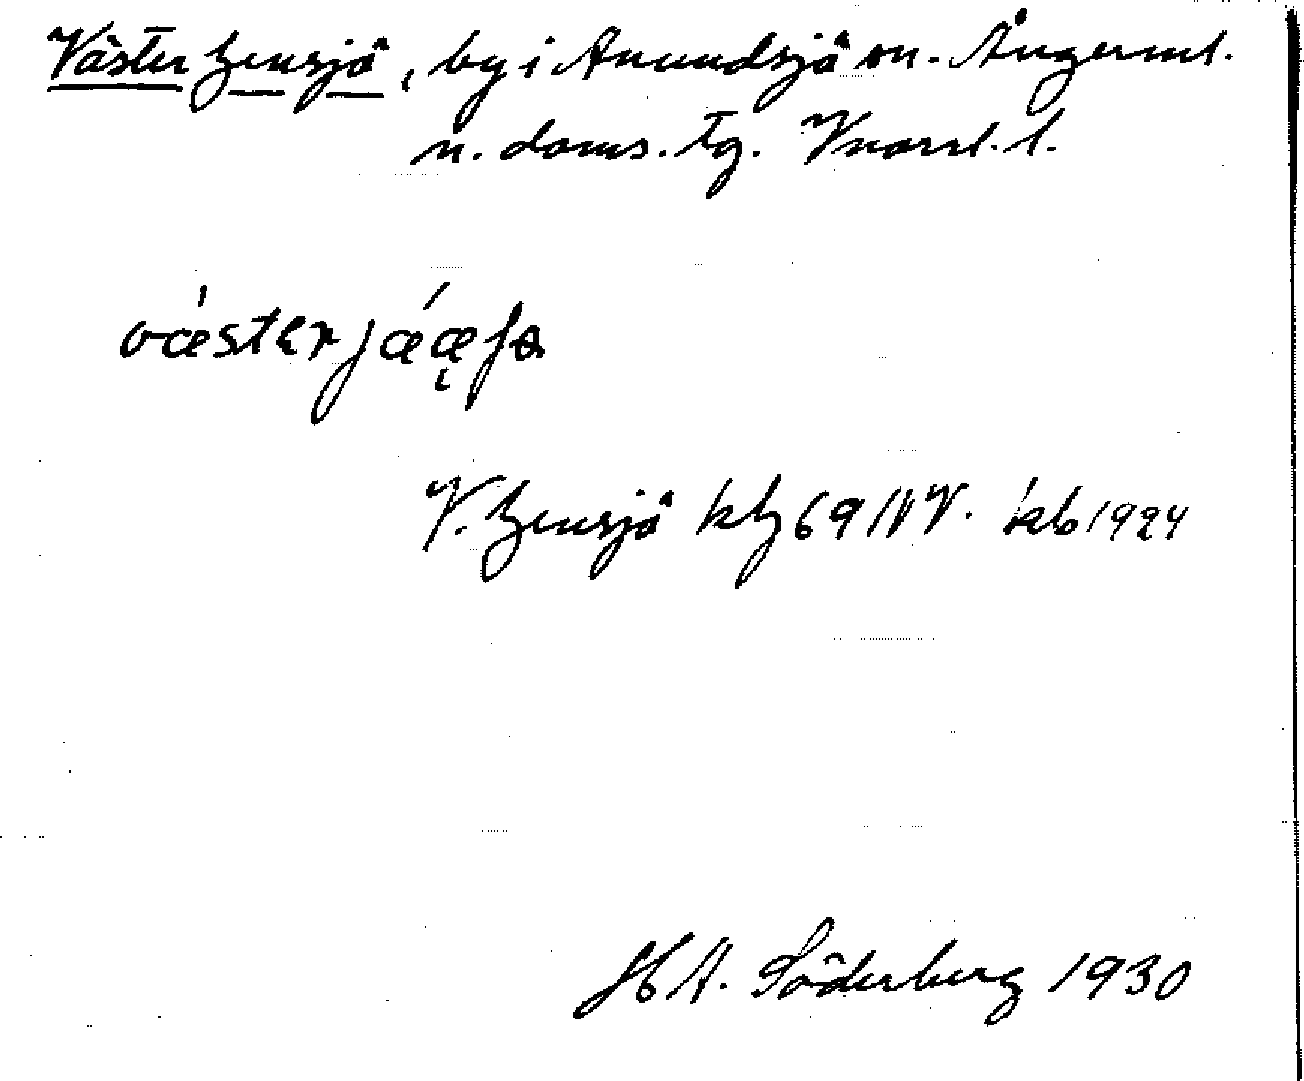 Väster Gensjö, by i Anundsjö sn. Ångerml.
n. doms. tg. Vnorrl. l.
V. Gensjö kbl 69 NV. kb 1924
H A. Söderberg 1930